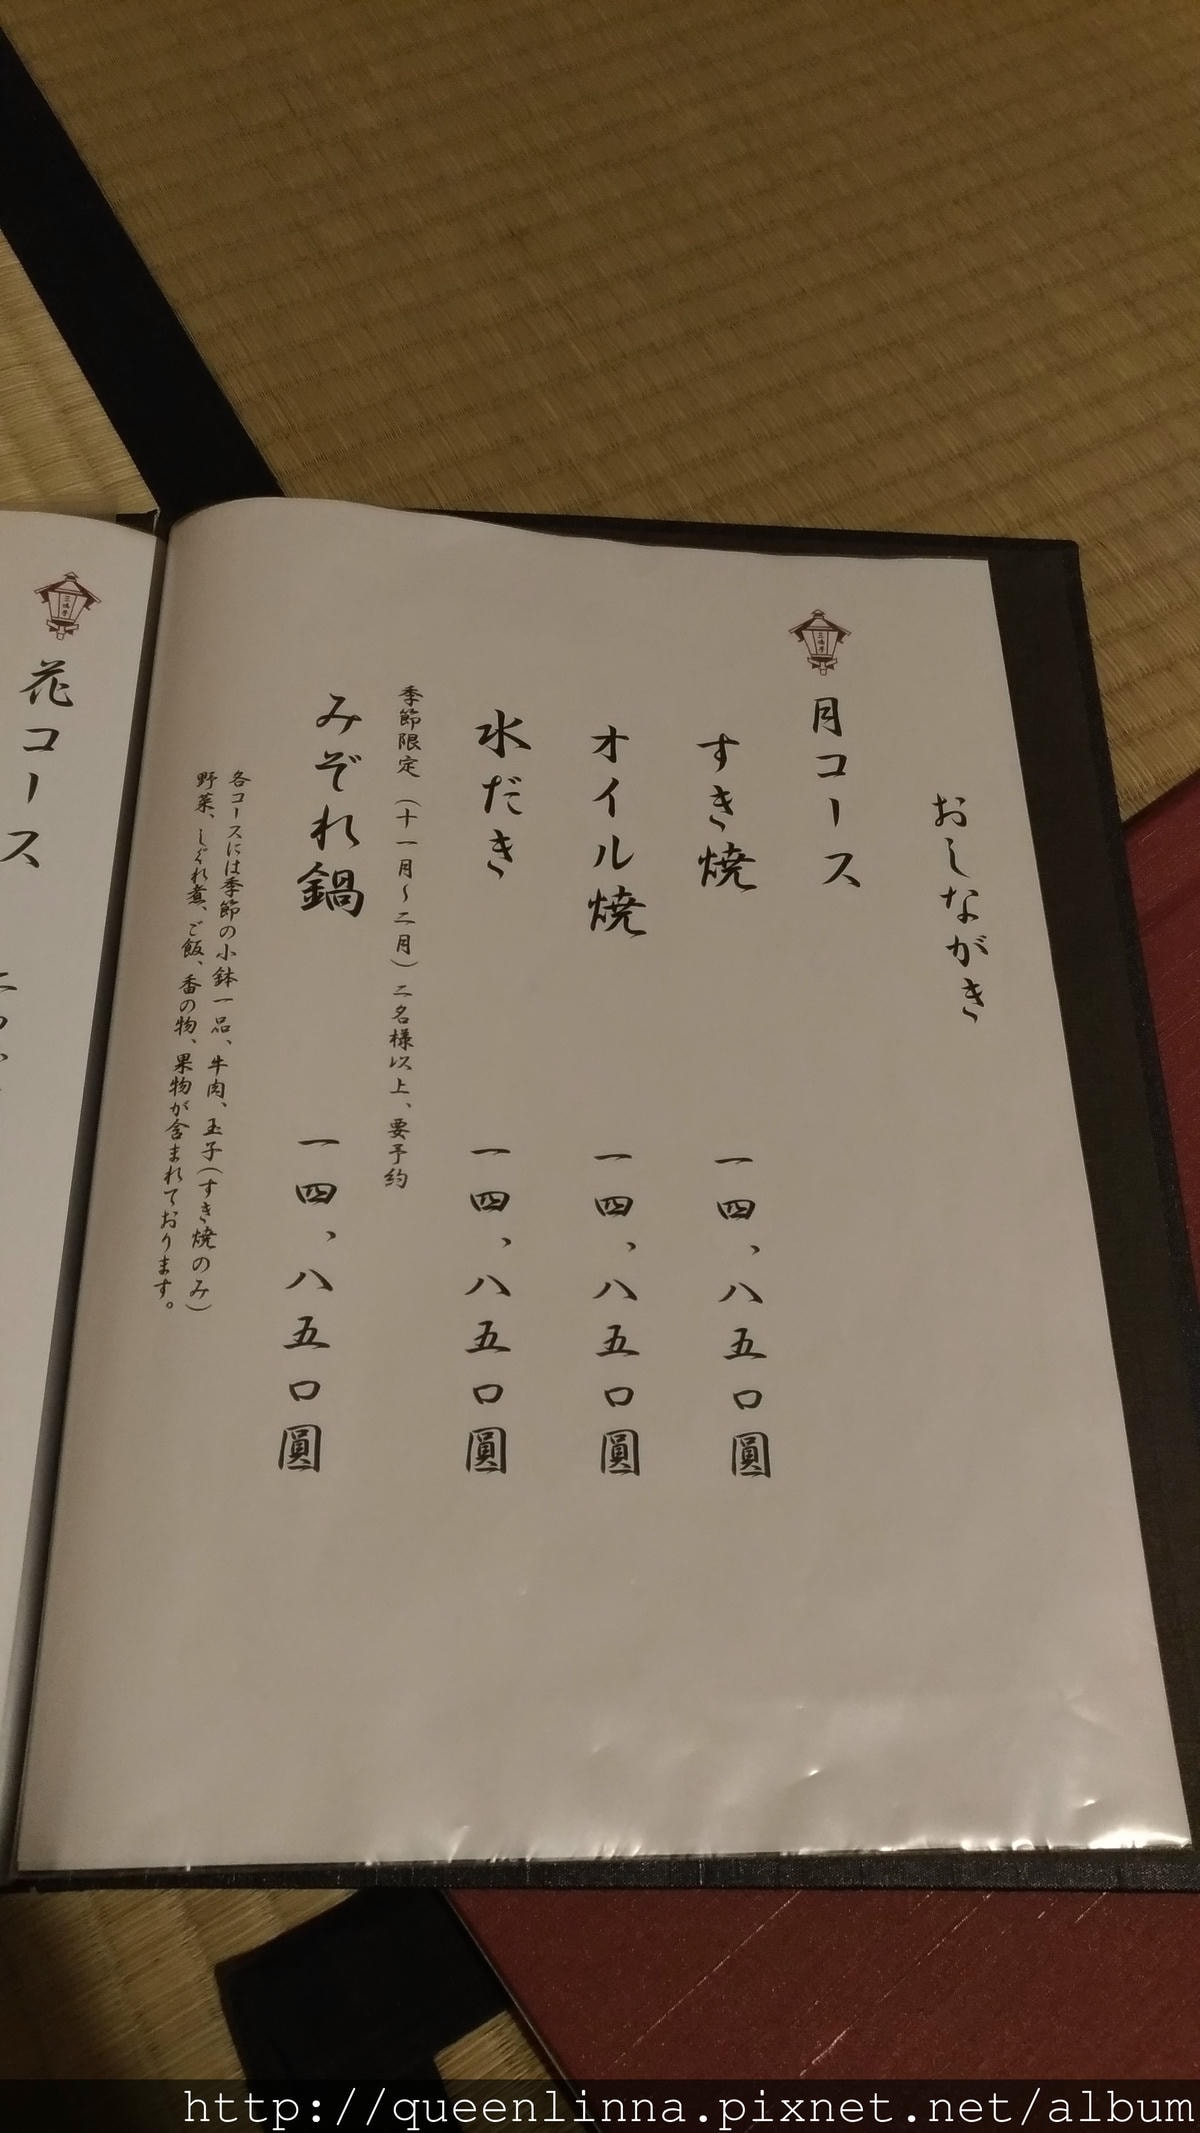 おしながき
三嶋亭
月コース
すき焼 一四、八五〇圓
オイル焼 一四、八五〇圓
水だき 一四、八五〇圓
季節限定（十一月～二月）二名様以上、要予約
みぞれ鍋 一四、八五〇圓
各コースには季節の小鉢一品、牛肉、玉子（すき焼のみ）
野菜、しぐれ煮、ご飯、香の物、果物が含まれております。
三嶋亭
花コース
http://queenlinna.pixnet.net/album